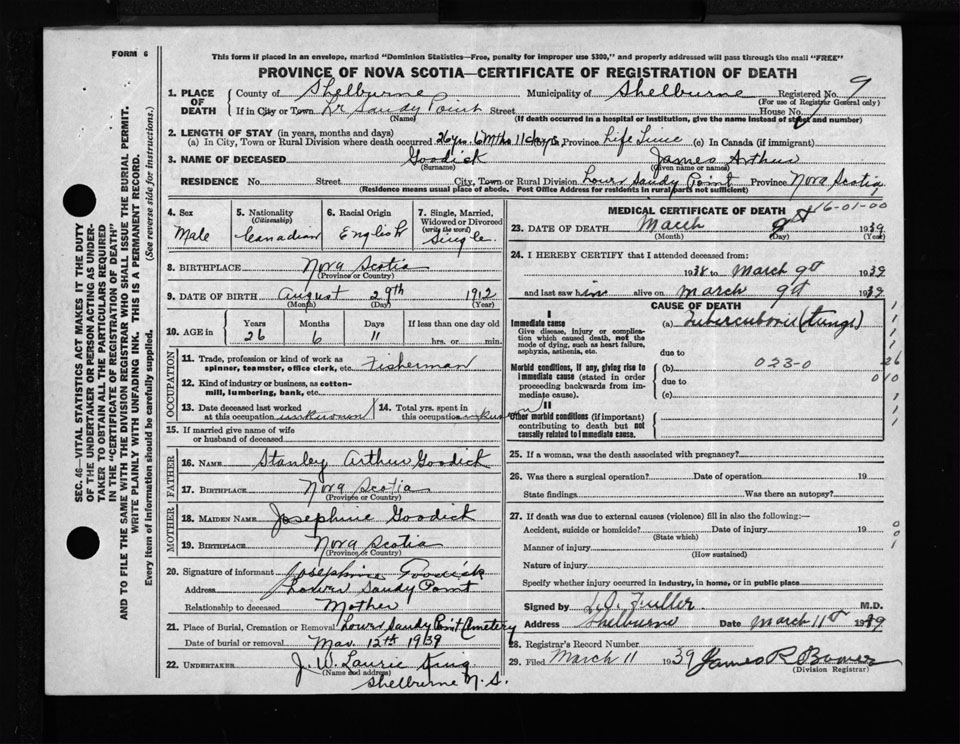 FORM 6
This form if placed in an envelope, marked "Dominion Statistics—Free, penalty for improper use $300," and properly addressed will pass through the mail "FREE"
PROVINCE OF NOVA SCOTIA—CERTIFICATE OF REGISTRATION OF DEATH
1. PLACE OF DEATH County of Shelburne Municipality of Shelburne Registered No. 9
(For use of Registrar General only)
If in City or Town Lr Sandy Point Street House No.
(Name) (If death occurred in a hospital or institution, give the name instead of street and number)
2. LENGTH OF STAY (in years, months and days)
(a) In City, Town or Rural Division where death occurred 26 yrs. 6 Mths 11 days Province Life Time (c) In Canada (if immigrant)
3. NAME OF DECEASED Goodick James Arthur
(Surname) (Given name or names)
RESIDENCE No. Street City, Town or Rural Division Lower Sandy Point Province Nova Scotia
(Residence means usual place of abode. Post Office Address for residents in rural parts not sufficient)
4. Sex Male
5. Nationality (Citizenship) Canadian
6. Racial Origin English
7. Single, Married, Widowed or Divorced (write the word) Single
8. BIRTHPLACE Nova Scotia
(Province or Country)
9. DATE OF BIRTH August 29th 1912
(Month) (Day) (Year)
10. AGE in Years 26 Months 6 Days 11 If less than one day old hrs. or min.
OCCUPATION
11. Trade, profession or kind of work as spinner, teamster, office clerk, etc. Fisherman
12. Kind of industry or business, as cotton-mill, lumbering, bank, etc.
13. Date deceased last worked at this occupation unknown
14. Total yrs. spent in this occupation unknown
15. If married give name of wife or husband of deceased
FATHER
16. NAME Stanley Arthur Goodick
17. BIRTHPLACE Nova Scotia
(Province or Country)
MOTHER
18. MAIDEN NAME Josephine Goodick
19. BIRTHPLACE Nova Scotia
(Province or Country)
20. Signature of informant Josephine Goodick
Address Lower Sandy Point
Relationship to deceased Mother
21. Place of Burial, Cremation or Removal Lower Sandy Point Cemetery
Date of burial or removal Mar. 12th 1939
22. UNDERTAKER J. W. Laurie King
(Name and address)
Shelburne N.S.
MEDICAL CERTIFICATE OF DEATH 16-01-00
23. DATE OF DEATH March 9th 1939
(Month) (Day) (Year)
24. I HEREBY CERTIFY that I attended deceased from:
1938 to March 9th 1939
and last saw him alive on March 9th 1939
CAUSE OF DEATH
I
Immediate cause
Give disease, injury or complication which caused death, not the mode of dying, such as heart failure, asphyxia, asthenia, etc.
(a) Tuberculosis (Lungs)
due to
Morbid conditions, if any, giving rise to immediate cause (stated in order proceeding backwards from immediate cause)
(b) 023-0
due to
(c)
26
010
II
Other morbid conditions (if important) contributing to death but not causally related to immediate cause.
25. If a woman, was the death associated with pregnancy?
26. Was there a surgical operation? Date of operation 19
State findings Was there an autopsy?
27. If death was due to external causes (violence) fill in also the following:—
Accident, suicide or homicide? Date of injury 19
(State which)
Manner of injury
(How sustained)
Nature of injury
Specify whether injury occurred in industry, in home, or in public place
001
Signed by L.O. Fuller M.D.
Address Shelburne Date March 11th 1939
28. Registrar's Record Number
29. Filed March 11 1939 James R Bower
(Division Registrar)
SEC. 46—VITAL STATISTICS ACT MAKES IT THE DUTY
OF THE UNDERTAKER OR PERSON ACTING AS UNDER-
TAKER TO OBTAIN ALL THE PARTICULARS REQUIRED
IN THE "CERTIFICATE OF REGISTRATION OF DEATH"
AND TO FILE THE SAME WITH THE DIVISION REGISTRAR WHO SHALL ISSUE THE BURIAL PERMIT.
WRITE PLAINLY WITH UNFADING INK. THIS IS A PERMANENT RECORD.
Every item of information should be carefully supplied. (See reverse side for instructions.)